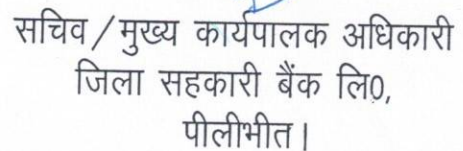 सचिव/मुख्य कार्यपालक अधिकारी
जिला सहकारी बैंक लि0,
पीलीभीत।